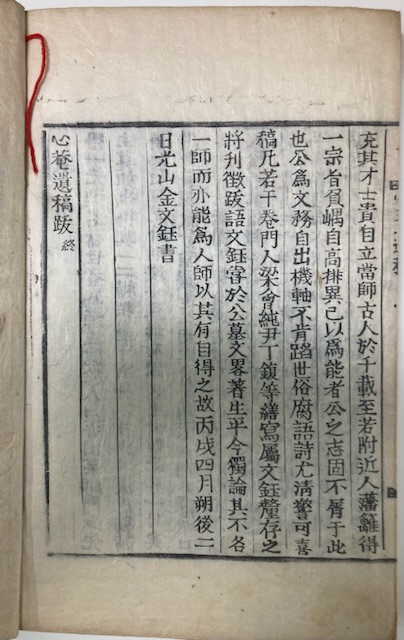 充其才士貴自立當師古人於千載至若附近人藩籬得
一宗省負嵎自高排異己以爲能者公之志固不屑于此
也公爲文務自出機軸不肯蹈世俗腐語詩尤淸警可喜
稿凡若干卷門人梁會純尹丁鍑等繕寫屬文鈺釐存之
將刊徵跋語文鈺嘗於公墓文畧著生平今獨論其不名
一師而亦能爲人師以其有自得之故丙戌四月朔後二
日光山金文鈺書
心菴遺稿跋 終